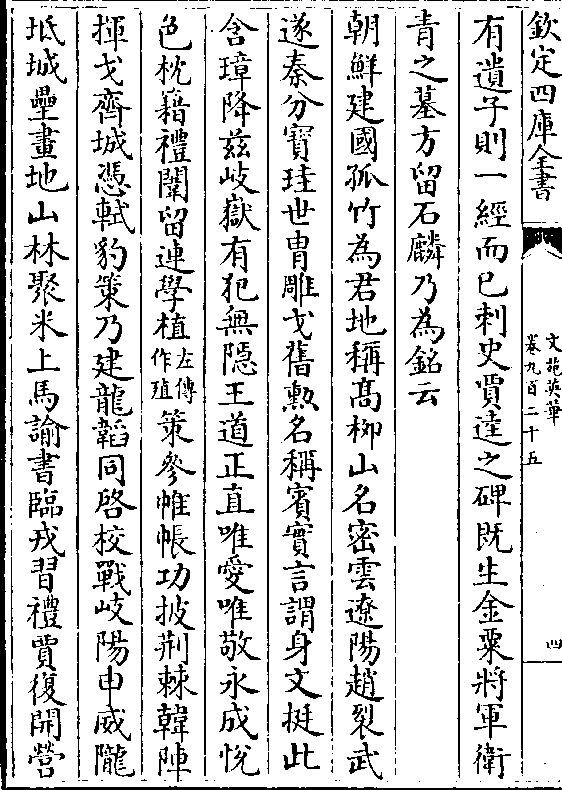 欽定四庫全書
文苑英華
卷九百二十五
四
有遺子則一經而已刺史賈逵之碑既生金粟將軍衛
青之墓方留石麟乃為銘云
朝鮮建國孤竹為君地稱髙栁山名密雲遼陽趙裂武
遂秦分寳珪世胄雕戈舊勲名稱賓實言謂身文挺此
含璋降兹岐嶽有犯無隠王道正直唯愛唯敬永成悅
色枕籍禮闈留連學植左傳作殖策參帷帳功披荆棘韓陣
揮戈齊城憑軾豹策乃建龍韜同啓校戰岐陽申威隴
坻城壘畫地山林聚米上馬諭書臨戎習禮賈復開營